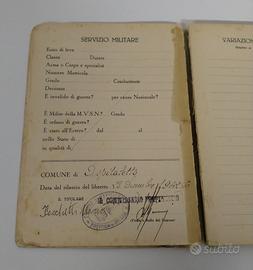 SERVIZIO MILITARE
Esito di leva
Classe Durata
Arma o Corpo e specialità
Numero Matricola
Grado Combattente
Decorato
È invalido di guerra? per causa Nazionale?
È Milite della M.V.S.N.? Grado
È orfano di guerra?
È stato all'Estero? dal al
nello Stato di
in qualità di
COMUNE di
Data del rilascio del libretto
IL TITOLARE
IL COMMISSARIO PREFETTIZIO
VARIAZIO
subito.it